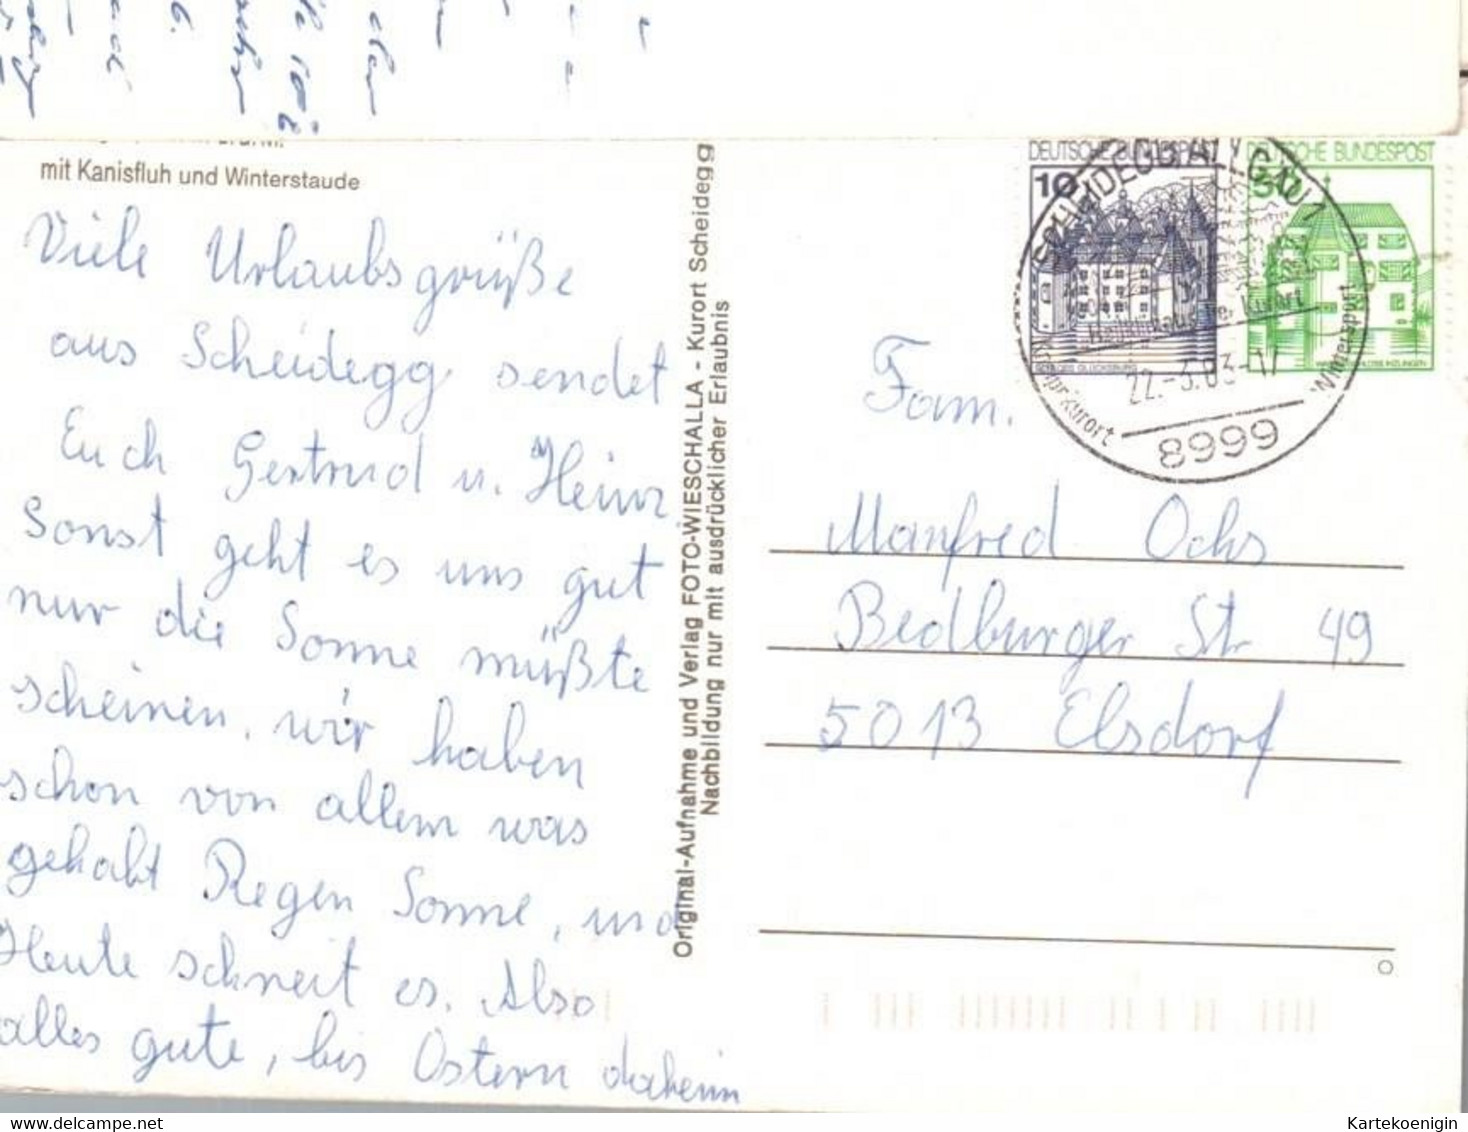 mit Kanisfluh und Winterstaude
Viele Urlaubsgrüße
aus Scheidegg sendet
Euch Gertrud u. Heinz
Sonst geht es uns gut
nur die Sonne müßte
scheinen, wir haben
schon von allem was
gehabt Regen Sonne, und
Heute schneit es. Also
alles gute, bis Ostern daheim
Original-Aufnahme und Verlag FOTO-WIESCHALLA - Kurort Scheidegg
Nachbildung nur mit ausdrücklicher Erlaubnis
DEUTSCHE BUNDESPOST
10
SCHLOSS GLÜCKSBURG
DEUTSCHE BUNDESPOST
50
SCHEIDEGG, ALLGÄU 1
Heilklimatischer Kurort
22.-3.83-17
Kneippkurort
Wintersport
8999
Fam.
Manfred Ochs
Bedburger Str 49
5013 Elsdorf
Kartekoenigin